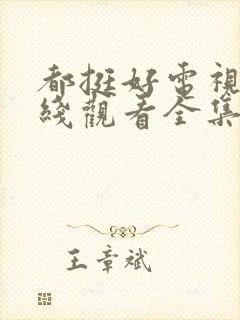 都挺好電視
綫觀看全集
王章斌